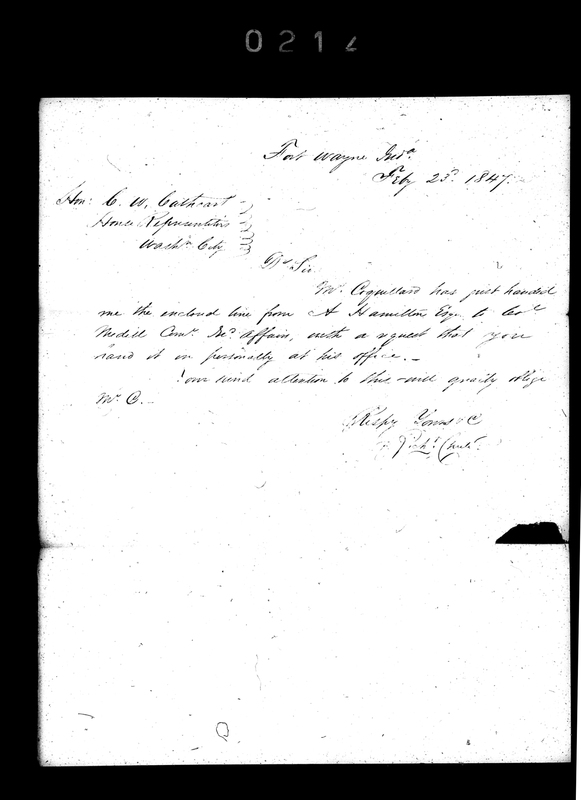 0212
Fort Wayne Inda.
Feby 23d. 1847.
Hon: C. W. Cathcart
House Representitives
Washn. City
Dr Sir
Mr. Coquillard has just handed
me the enclosed line from A Hamilton Esq. to Col
Medill Comr. Ind. Affairs, with a request that you
hand it in personally at his office. _
Your kind attention to this will greatly oblige
Mr. C. _
Respy Yours &C